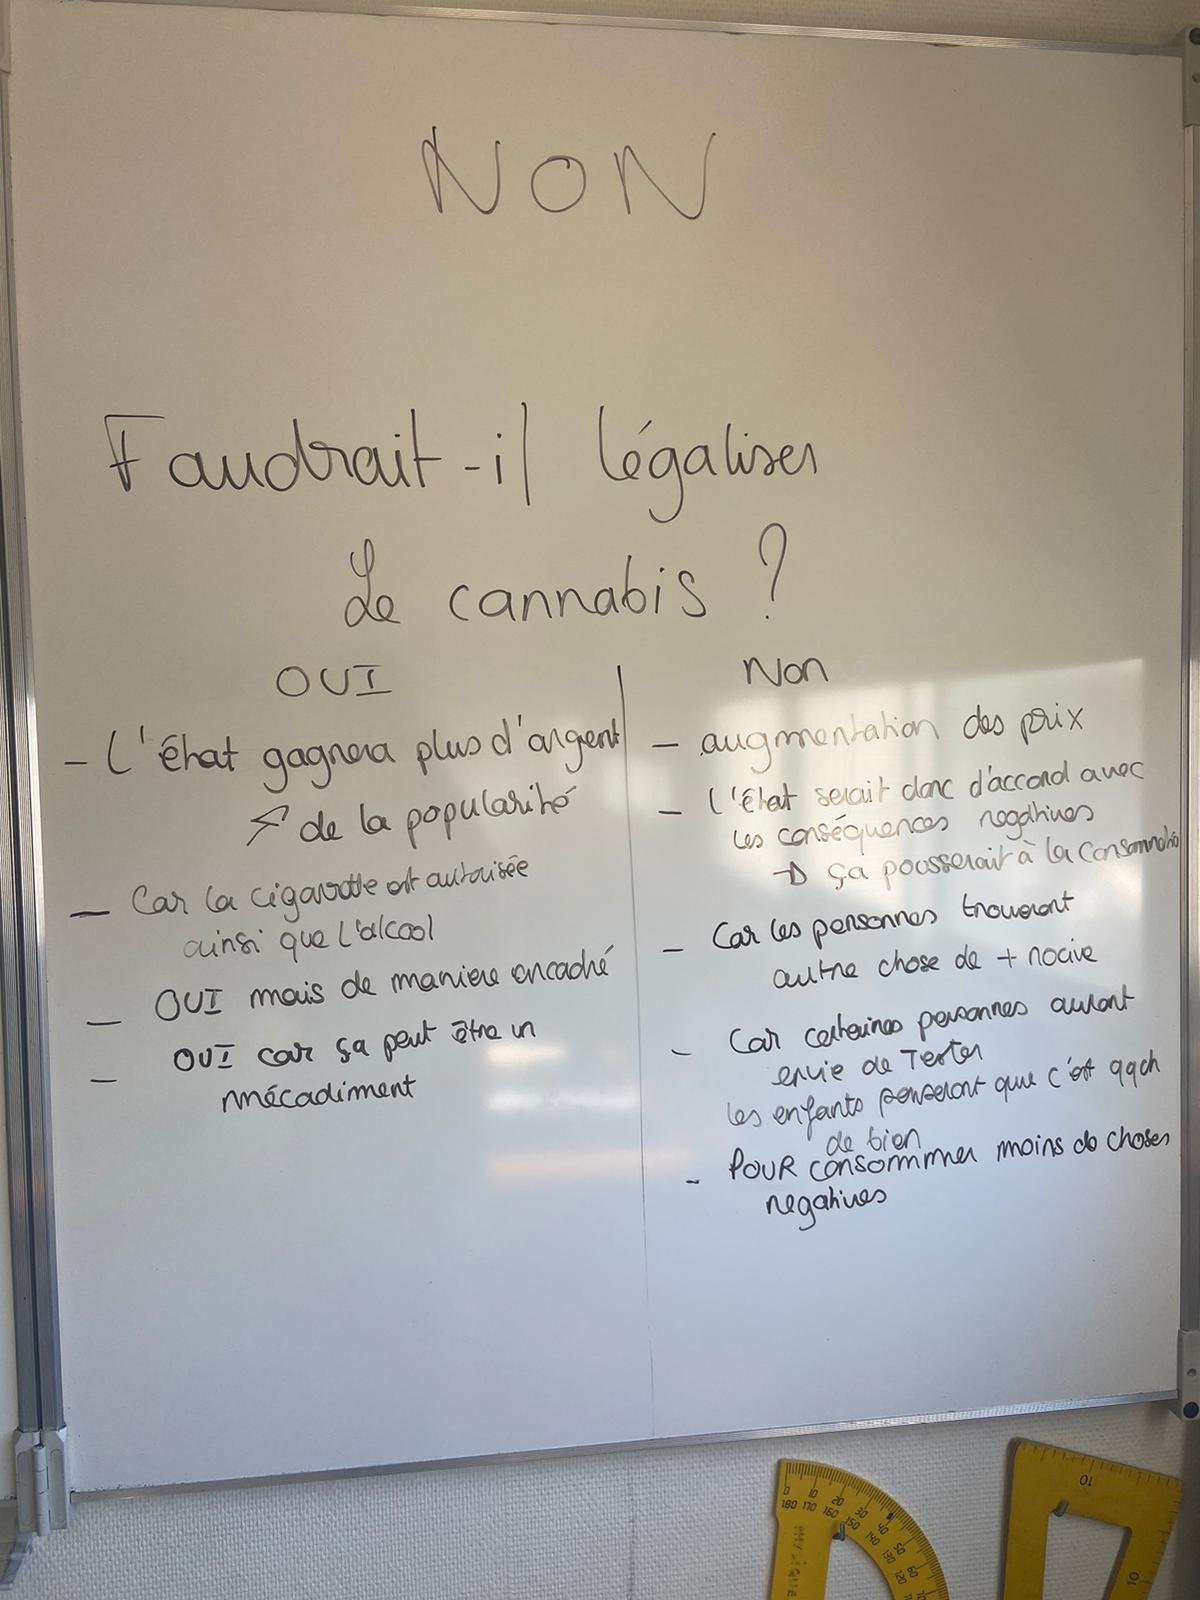 NON
Faudrait-il légaliser
Le cannabis ?
OUI
- L'état gagnera plus d'argent
↗ de la popularité
- Car la cigarette est autorisée
ainsi que l'alcool
- OUI mais de maniere encadré
- OUI car ça peut être un
mécadiment
Non
- augmentation des prix
- l'état serait donc d'accord avec
les conséquences negatives
→ ça pousserait à la consommatio
- Car les personnes trouveront
autre chose de + nocive
- Car certaines personnes auront
envie de Tester
les enfants penseront que c'est qqch
de bien
- POUR consommer moins de choses
negatives
0 10 20 30 40 50 60
180 170 160 150 140 130 120
10
10